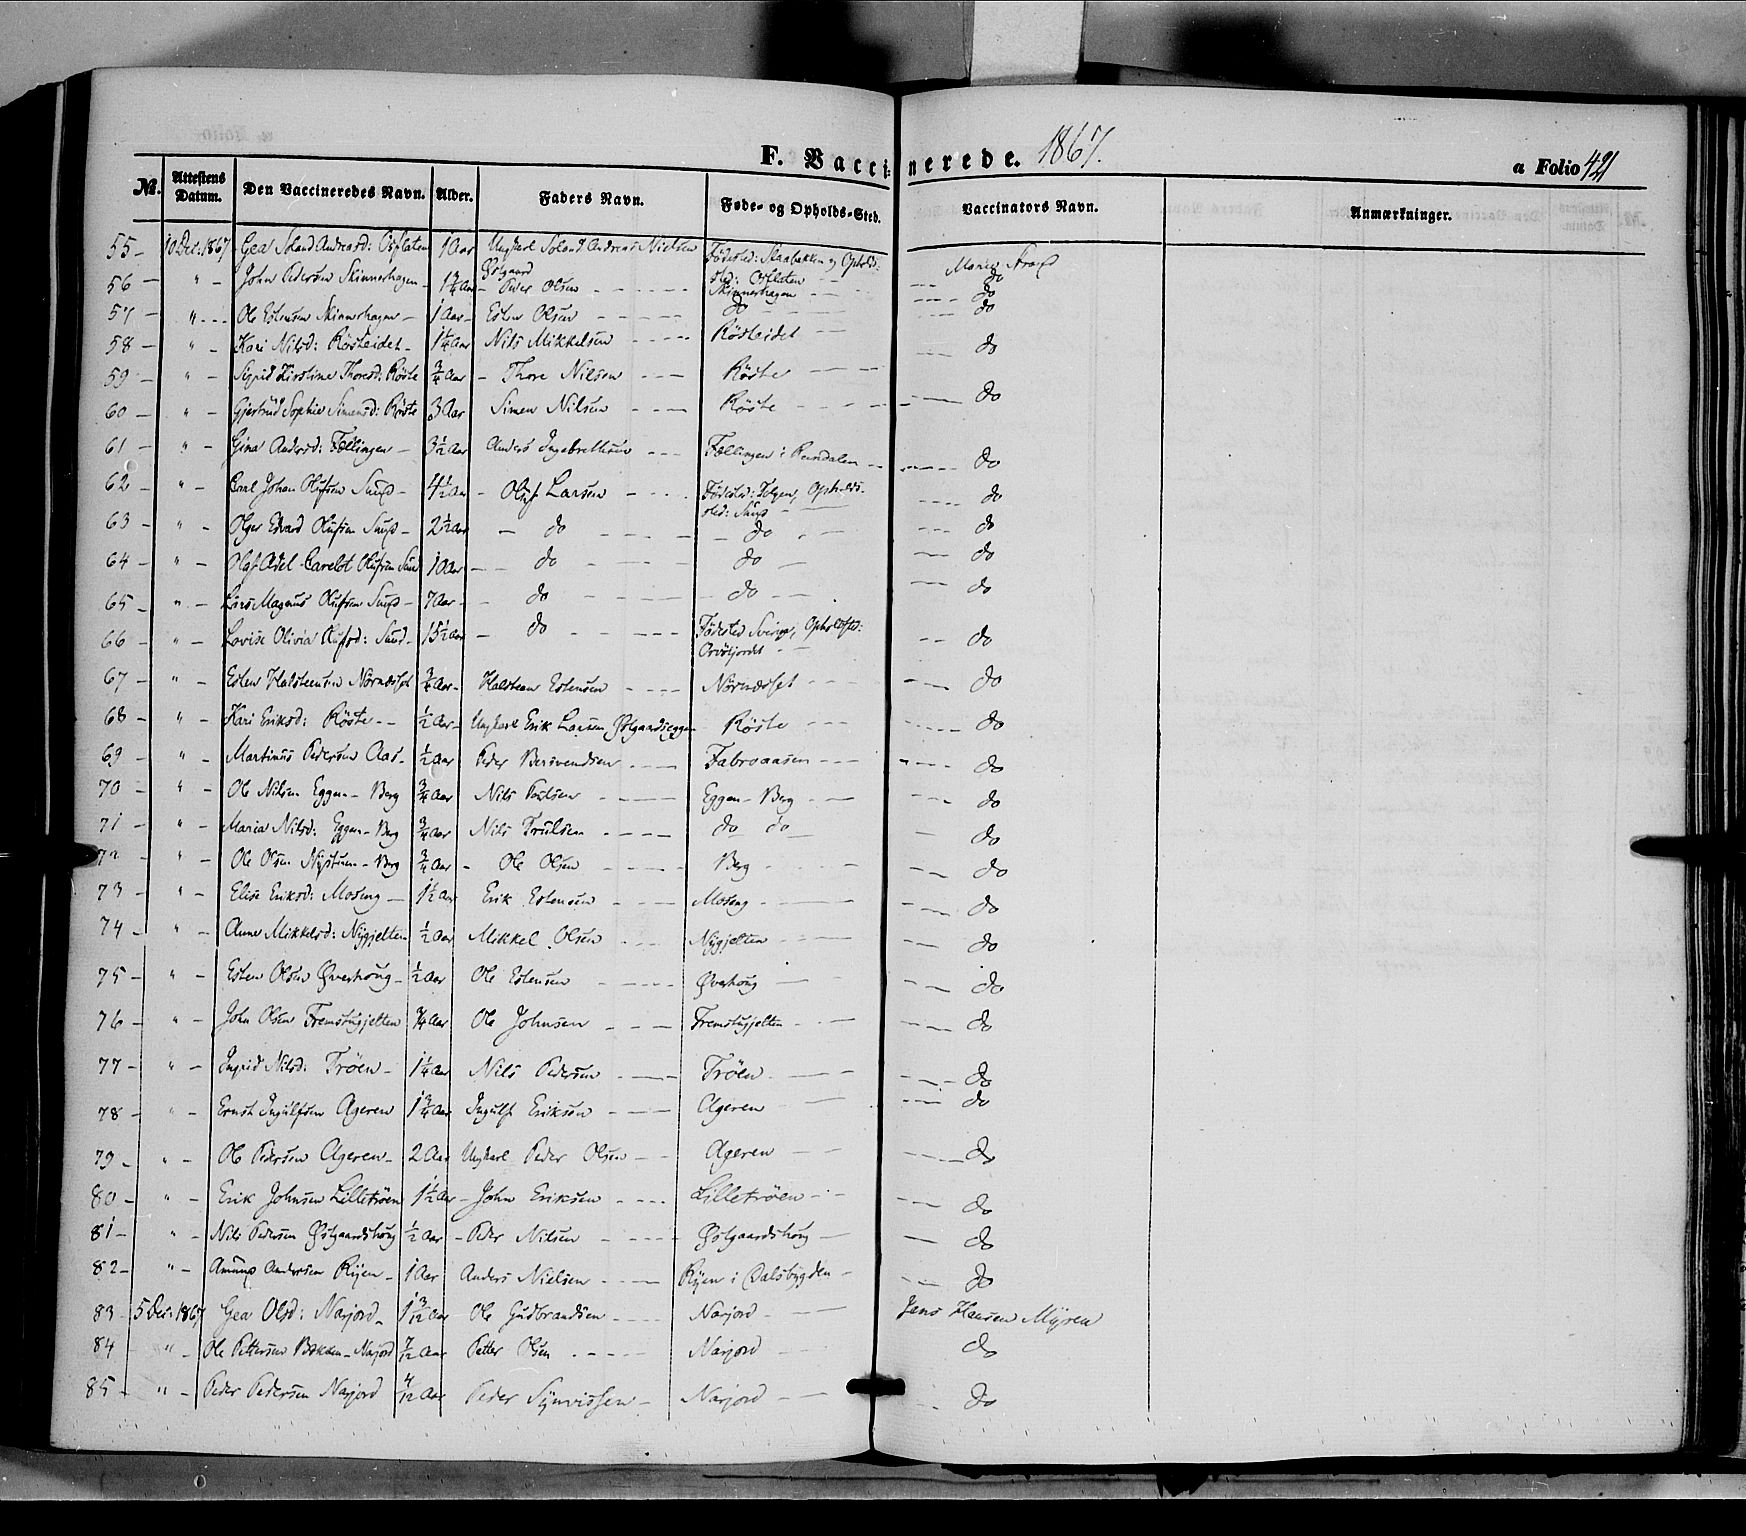 F. Vaccinerede. 1867.
a Folio 421
No. Attestens Datum. Den Vaccineredes Navn. Alder. Faders Navn. Føde- og Opholds-Sted. Vaccinators Navn. Anmærkninger.
55 - 10 Dec. 1867 1 Aar Ungkarl Andreas Nielsen Fødested: og Opholds-
Østgaard sted:
56 - " - John Pedersen Skinnerhagen - 1 3/4 Aar - Peder Olsen - - - Skinnerhagen - - - do
57 - " - Ole Estensen Skinnerhagen - 1 Aar - Esten Olsen - - - do - - - do
58 - " - Kari Nilsd: Rösteidet - 1 1/4 Aar Nils Mikkelsen - - - Rösteidet - - - do
59 - " - Sigrid Kirstine Thoresd: Röste 3/4 Aar - Thore Nilsen - - - Röste - - -
60 - " - Gjertrud Sophie Simensd: Röste 3 Aar Simen Nilsen - - - Röste - - - do
61 - " - Gina Andersd: Fællingen - 3 1/2 Aar Anders Ingebrethsen - - - Fællingen i Rendalen - - - do
62 - " - Carl Johan Olufsen Sund - 4 1/2 Aar - Oluf Larsen - - - Fødested: Tolgen, Opholds-
sted: Sund - - - do
63 - " - Olger Edvard Olufsen Sund - 2 1/2 Aar - do - - - do - - - do
64 - " - Olufsen Sund 1 Aar - do - - - do - - - do
65 - " - Lars Magnus Olufsen Sund - 7 Aar - do - - - do - - - do
66 - " - Lovise Olivia Olufsd: Sund - 15 1/2 Aar - do - - - Fødested Sverige, Opholdsted:
- - - do
67 - " - Esten Halsteensen Nörnæsset 3/4 Aar - Halsteen Estensen - - - Nörnæsset - - - do
68 - " - Kari Eriksd: Röste - - 1/2 Aar - Ungkarl Erik Larsen Østgaardseggen Röste - - - do
69 - " - Martinus Pedersen Aas - 1/2 Aar Peder Bersvendsen - - - - - - do
70 - " - Ole Nilsen Eggen - Berg 3/4 Aar Nils - - - Eggen - Berg - - - do
71 - " - Maria Nilsd: Eggen - Berg 3/4 Aar Nils Trulsen - - - do do - do
72 - " - Ole Olsen Nystuen - Berg 3/4 Aar - Ole Olsen - - - Berg - - - do
73 - " - Elise Eriksd: Moseng - 1 1/2 Aar Erik Estensen - - - Moseng - - - do
74 - " - Anne Mikkelsd: Nygjelten 1/2 Aar Mikkel Olsen - - - Nygjelten - - - do
75 - " - Esten Olsen Øverhoug - 1/2 Aar Ole Estensen - - - Øverhoug - - - do
76 - " - John Olsen Fremstugjelten 3/4 Aar Ole Johnsen - - - Fremstugjelten - - - do
77 - " - Ingrid Nilsd: Tröen - 1 1/4 Aar Nils Pedersen - - - Tröen - - - do
78 - " - Ernst Ingulfsen Ageren 1 3/4 Aar Ingulf Eriksen - - - Ageren - - - do
79 - " - Ole Pedersen Ageren - 2 Aar Ungkarl Peder Olsen - - Ageren - - - do
80 - " - Erik Johnsen Lilletröen 1 1/2 Aar - John Eriksen - - - Lilletröen - - - do
81 - " - Nils Pedersen Østgaardshoug 1/2 Aar - Peder Nilsen - - - Østgaardshoug - - do
82 - " - Amund Andersen Ryen - 1 Aar Anders Nielsen - - - Ryen i Dalsbygden - - do
83 - 5 Dec. 1867 Gea Olsd: Narjord - 1 3/12 Aar Ole Gudbrandsen - - - Narjord - - - Jens Hansen Myren
84 - " - Ole Pettersen Bakken - Narjord 7/12 Aar Petter Olsen - - - Narjord - - - do
85 - " - Peder Pedersen Narjord 4/12 Aar Peder Synvissen - Narjord - - - do